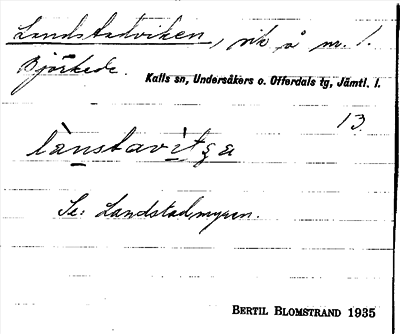 Landstadviken, vik å m. l.
Björkede.
Kalls sn, Undersåkers o. Offerdals tg, Jämtl. l.
13.
lànstavìtga
Se: Landstadmyren.
BERTIL BLOMSTRAND 1935